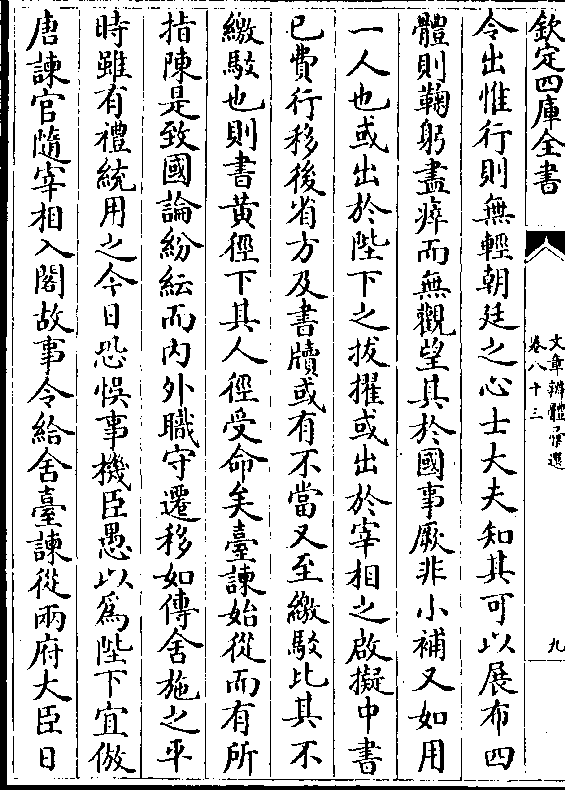 欽定四庫全書
文章辨體彚選
卷八十三
九
令出惟行則無輕朝廷之心士大夫知其可以展布四
體則鞠躬盡瘁而無觀望其於國事厥非小補又如用
一人也或出於陛下之拔擢或出於宰相之啟擬中書
已費行移後省方及書牘或有不當又至繳駮比其不
繳駮也則書黃徑下其人徑受命矣臺諫始從而有所
指陳是致國論紛紜而内外職守遷移如傳舍施之平
時雖有禮統用之今日恐悞事機臣愚以為陛下宜倣
唐諫官隨宰相入閣故事令給舍臺諫從兩府大臣日